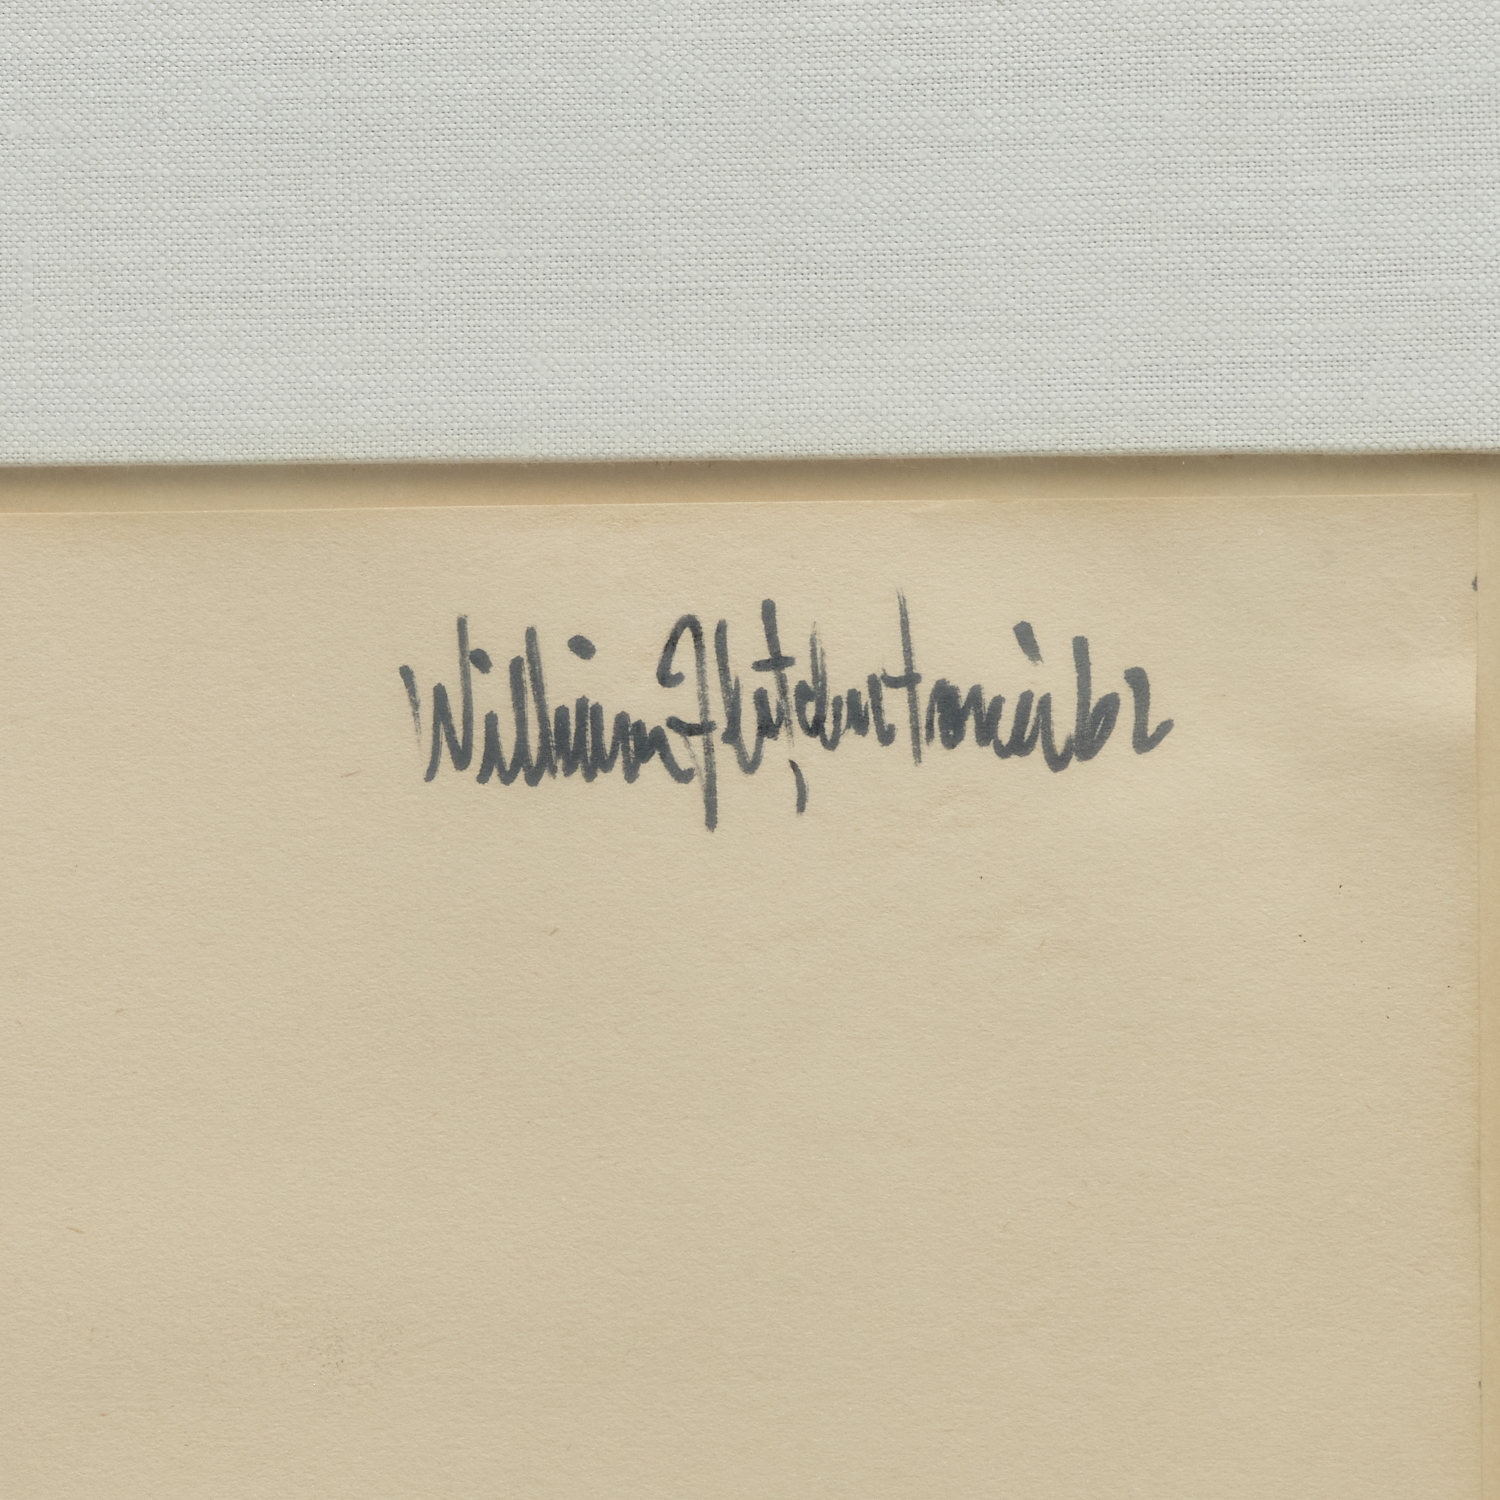 William Fletcher Jones 62